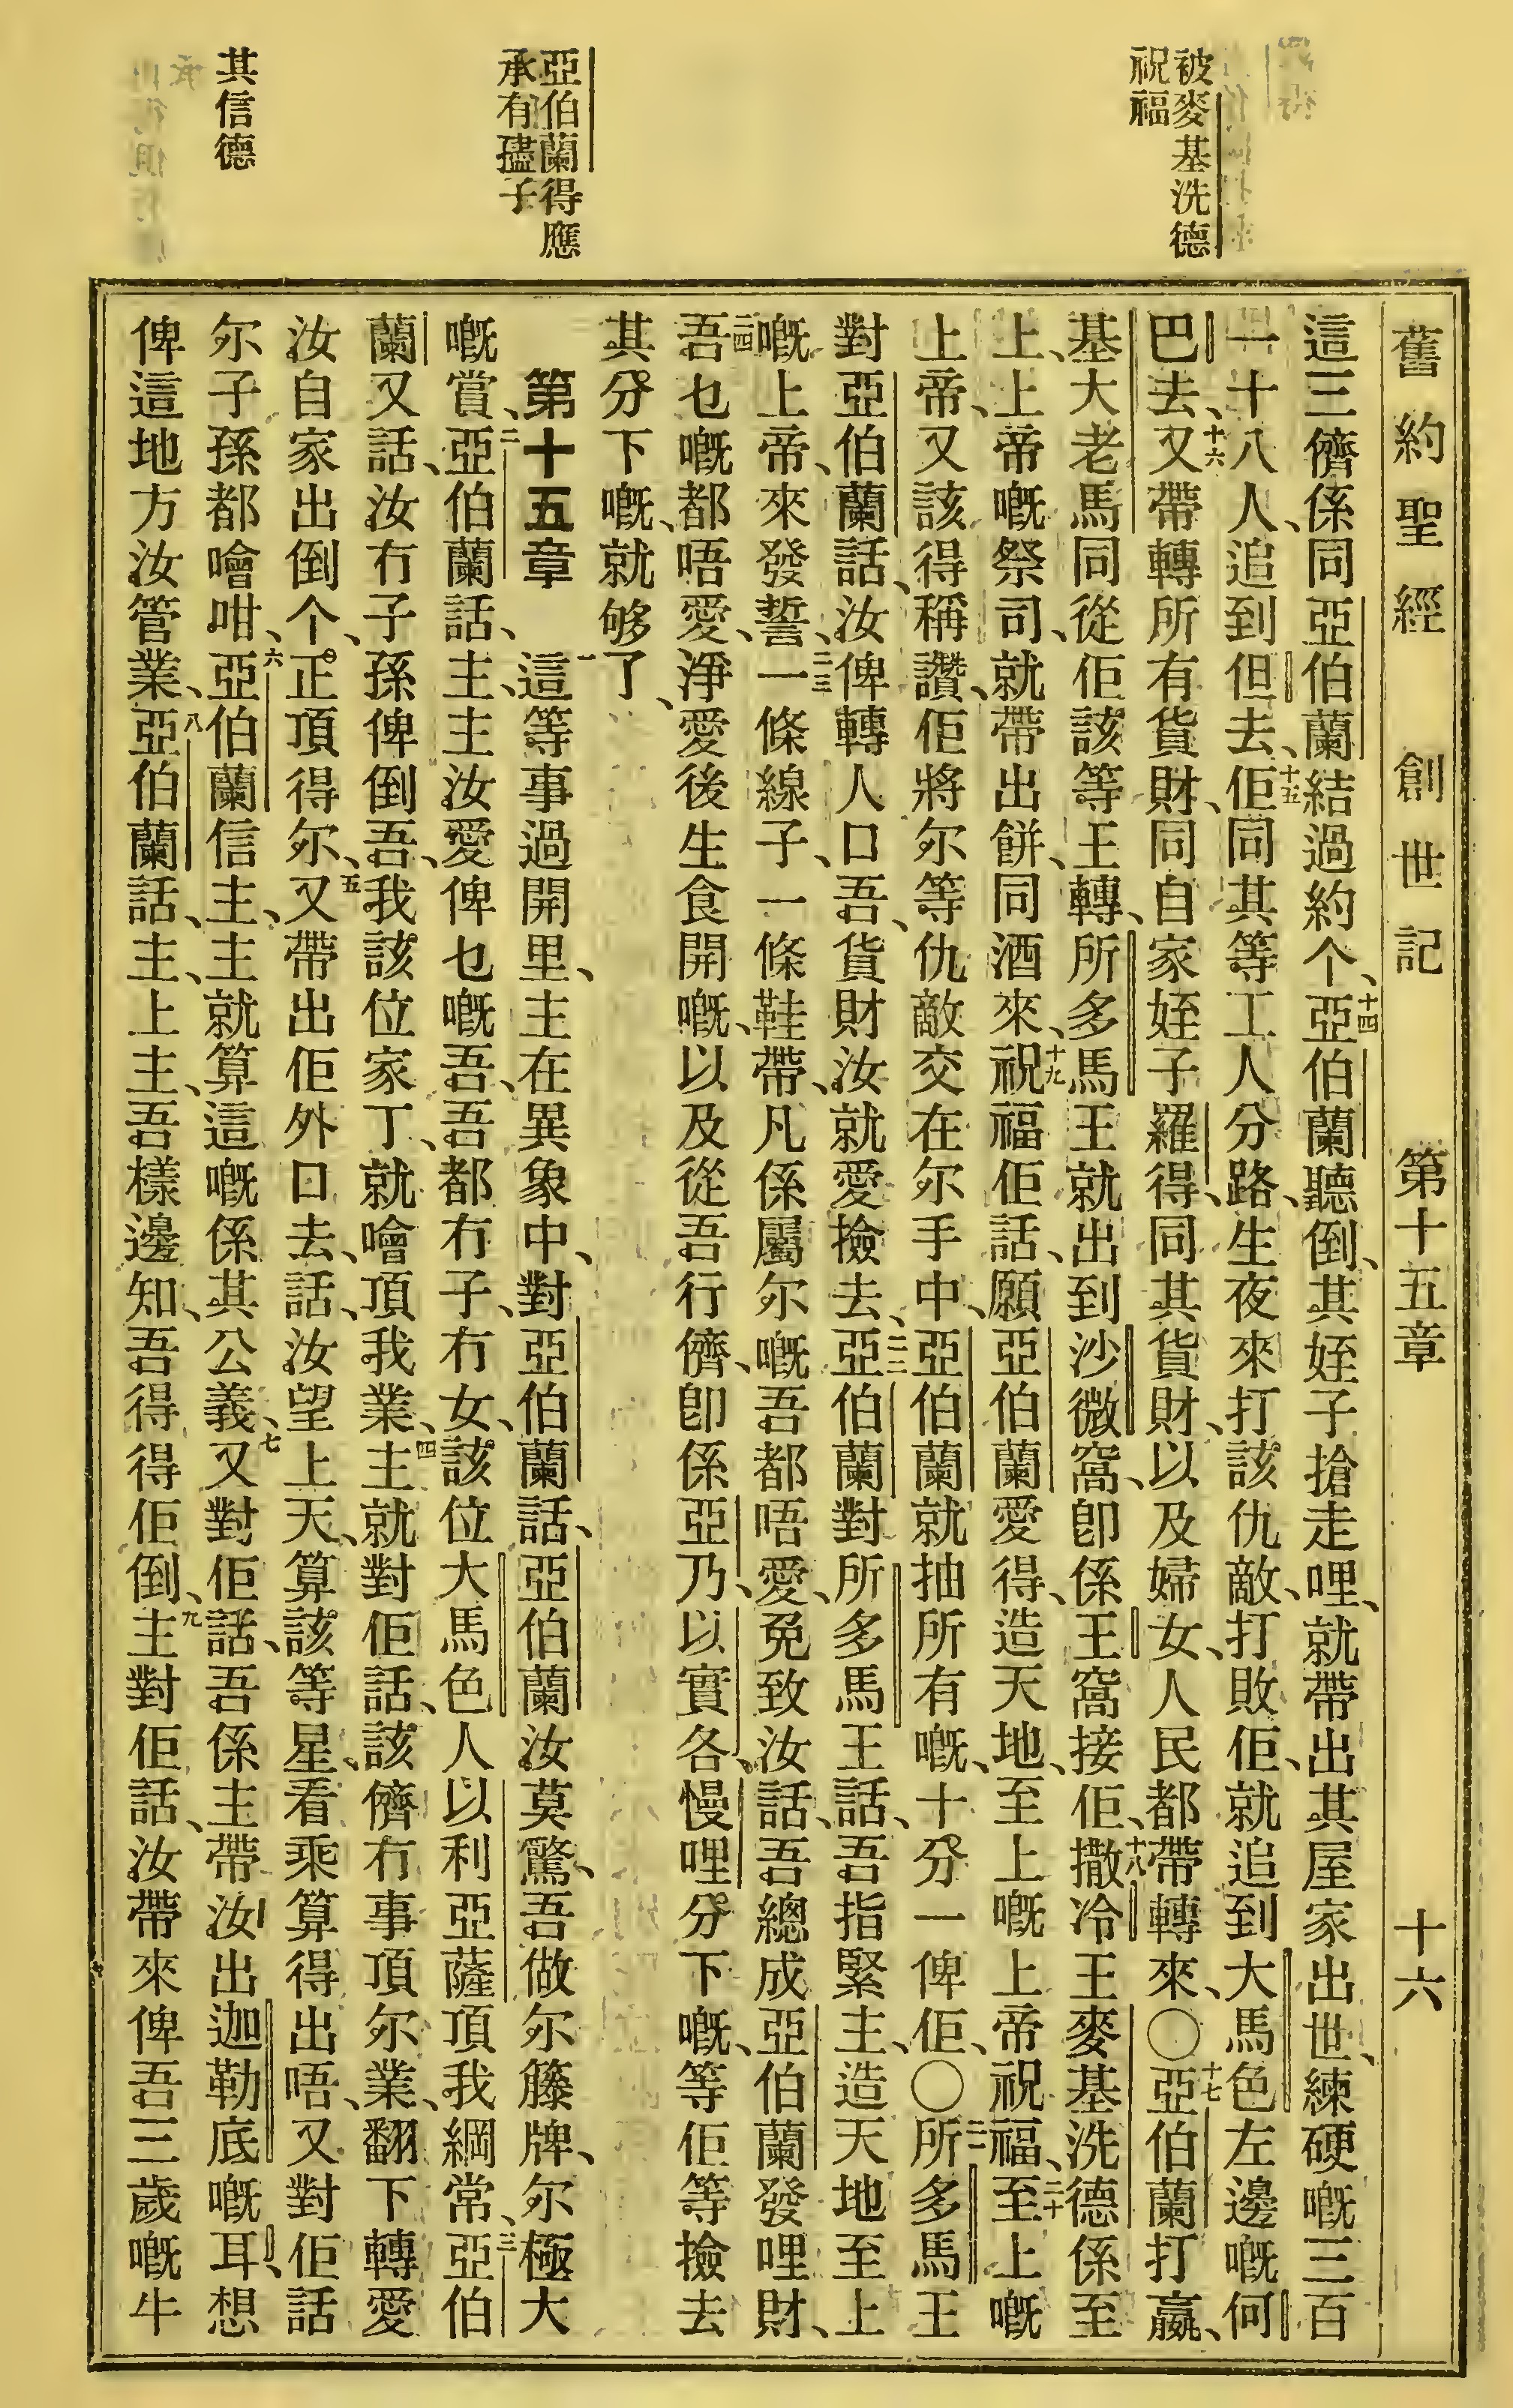 被麥基洗德
祝福
亞伯蘭得應
承有孻子
其信德
舊約聖經 創世記 第十五章 十六
這三儕係同亞伯蘭結過約个、十四亞伯蘭聽倒、其姪子搶走哩、就帶出其屋家出世、練硬嘅三百
一十八人、追到但去、十五佢同其等工人分路、生夜來打該仇敵、打敗佢、就追到大馬色左邊嘅何
巴去、十六又帶轉所有貨財、同自家姪子羅得、同其貨財、以及婦女、人民都帶轉來、〇十七亞伯蘭打嬴、
基大老馬同從佢該等王轉、所多馬王就出到沙微窩、卽係王窩接佢、十八撒冷王麥基洗德係至
上、上帝嘅祭司、就帶出餅、同酒來、十九祝福佢話、願亞伯蘭愛得、造天地、至上嘅上帝祝福、二十至上嘅
上帝、又該得稱讚、佢將尔等仇敵交在尔手中、亞伯蘭就抽所有嘅、十分一俾佢、〇二一所多馬王
對亞伯蘭話、汝俾轉人口吾、貨財汝就愛撿去、二二亞伯蘭對所多馬王話、吾指緊主、造天地至上
嘅上帝、來發誓、二三一條線子、一條鞋帶、凡係屬尔嘅吾都唔愛、免致汝話、吾總成亞伯蘭發哩財、
二四吾乜嘅都唔愛、淨愛後生食開嘅、以及從吾行儕、卽係亞乃、以實各、慢哩分下嘅、等佢等撿去
其分下嘅、就够了、
第十五章 一這等事過開里、主在異象中、對亞伯蘭話、亞伯蘭汝莫驚、吾做尔籐牌、尔極大
嘅賞、二亞伯蘭話、主、主汝愛俾乜嘅吾、吾都冇子、冇女、該位大馬色人以利亞薩頂我綱常、三亞伯
蘭又話、汝冇子孫俾倒吾、我該位家丁、就噲頂我業、四主就對佢話、該儕冇事頂尔業、翻下轉愛
汝自家出倒个、正頂得尔、五又帶出佢外口去、話、汝望上天、算該等星、看乘算得出唔、又對佢話
尔子孫都噲咁、六亞伯蘭信主、主就算這嘅係其公義、七又對佢話、吾係主帶汝出迦勒底嘅耳、想
俾這地方汝管業、八亞伯蘭話、主、上主、吾樣邊知、吾得得佢倒、九主對佢話、汝帶來俾吾三歲嘅牛